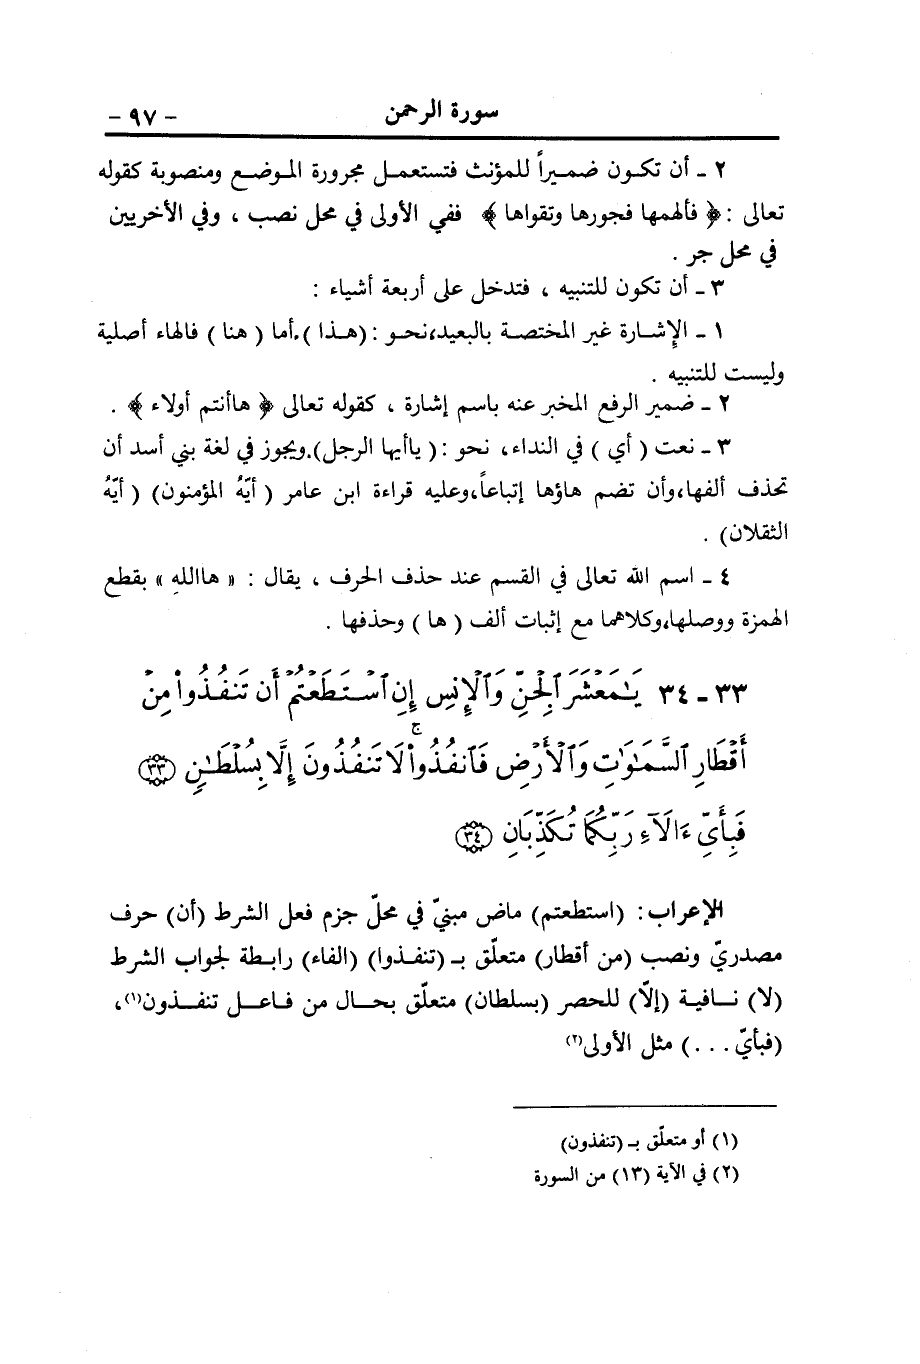 سورة الرحمن - ٩٧ -
٢ ـ أن تكون ضميراً للمؤنث فتستعمل مجرورة الموضع ومنصوبة كقوله
تعالى : ﴿ فألهمها فجورها وتقواها ﴾ ففي الأولى في محل نصب ، وفي الأخريين
في محل جر .
٣ ـ أن تكون للتنبيه ، فتدخل على أربعة أشياء :
١ ـ الإشارة غير المختصة بالبعيد،نحو : (هذا ).أما ( هنا ) فالهاء أصلية
وليست للتنبيه .
٢ ـ ضمير الرفع المخبر عنه باسم إشارة ، كقوله تعالى ﴿ هاأنتم أولاء ﴾ .
٣ ـ نعت ( أي ) في النداء، نحو : ( ياأيها الرجل).ويجوز في لغة بني أسد أن
تحذف ألفها،وأن تضم هاؤها إتباعاً،وعليه قراءة ابن عامر ( أيّهُ المؤمنون) ( أيّهُ
الثقلان) .
٤ ـ اسم الله تعالى في القسم عند حذف الحرف ، يقال : « هاالله » بقطع
الهمزة ووصلها،وكلاهما مع إثبات ألف ( ها ) وحذفها .
٣٣ ـ ٣٤ يَـٰمَعْشَرَ ٱلْجِنِّ وَٱلْإِنسِ إِنِ ٱسْتَطَعْتُمْ أَن تَنفُذُوا۟ مِنْ
أَقْطَارِ ٱلسَّمَـٰوَٰتِ وَٱلْأَرْضِ فَٱنفُذُوا۟ ۚ لَا تَنفُذُونَ إِلَّا بِسُلْطَـٰنٍ (٣٣)
فَبِأَىِّ ءَالَآءِ رَبِّكُمَا تُكَذِّبَانِ (٣٤)
الإعراب: (استطعتم) ماض مبنيّ في محلّ جزم فعل الشرط (أن) حرف
مصدريّ ونصب (من أقطار) متعلّق بـ (تنفذوا) (الفاء) رابطة لجواب الشرط
(لا) نافية (إلّا) للحصر (بسلطان) متعلّق بحال من فاعل تنفذون(١)،
(فبأيّ . . .) مثل الأولى(٢)
(١) أو متعلّق بـ (تنفذون)
(٢) في الآية (١٣) من السورة